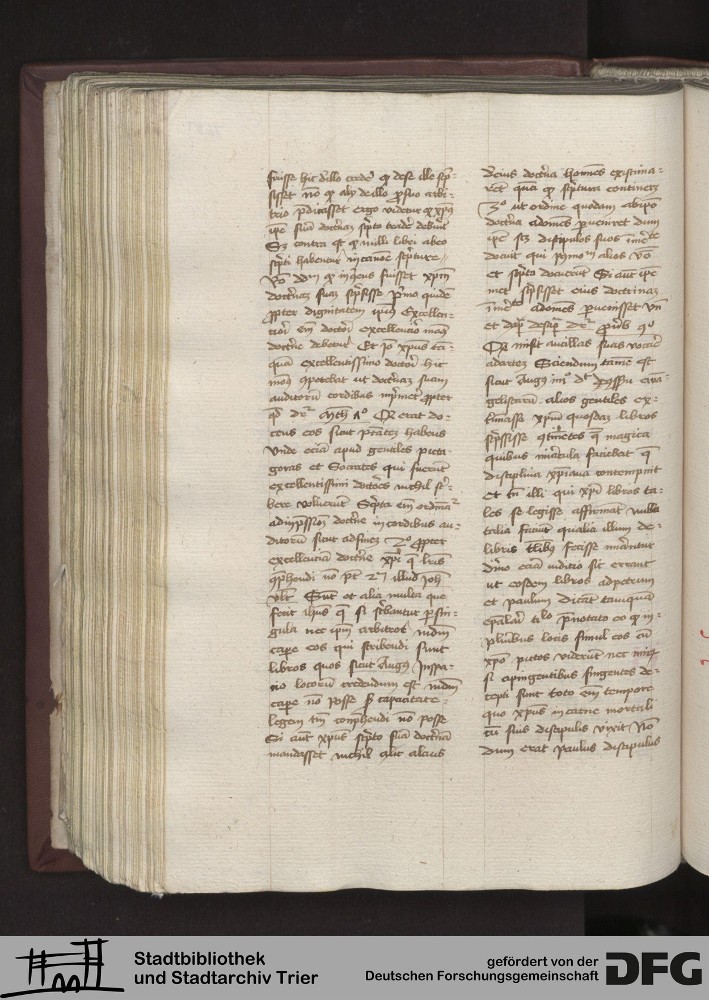 fuisse hic dillo crede qd de se ille scp
sisset no qd aly de illo p suo arbi
trio pdicasset ergo videtur q xpus
ipe sua doctrinaz scpto trade debuit
Sz contra est q nulli libri ab eo
scpti habentur in canone scpture
doctrinaz suaz scpsisse primo quide
ppter dignitatem ipius Excellen
tiori em doctori excellencior modus
doctrine debetur Et io xpus tan
qua excellentissimo doctori hic
modus competebat ut doctrinaz suam
auditorum cordibus imprimeret ppter
qd dr Mth Erat do
cens eos sicut ptatez habens
Unde ecia apud gentiles picta
goras et Socrates qui fuerut
excellentissimi doctores nichil scri
bere voluerut Scpta em ordinatur
ad impssionem doctrine in cordibus au
ditoru sicut ad finez 2o ppter
excellencia doctrine xpi que lris
qphendi no pt illud Joh
vlt Sut et alia multa que
fecit ihus que si scribantur p sin
gula nec ipm arbitror mdm
cape eos qui scribendi sunt
libros quos sicut Augus in spa
cio locoru credendum est mdm
cape no posse sz capacitate
legem tm comphendi no posse
Si aut xpus scpto sua doctrina
mandasset nichil altius
de eius doctrina homines existima
ret qua qd scptura continet
3o ut ordine quodam ab ipo
doctrina ad omes pueniret dum
ipe scz discipulos suos
docuit qui postmodum alios
et scpto docuerut Si aut ipe
met scpsisset eius doctrina
ad omes puenisset Vn
et de sapientia dr Prouerb 9o
Misit ancillas suas vocare
ad arcez Sciendum tame est
sicut Augus dicit de consensu euan
gelistaru alios gentiles ex
timasse xpm quosdaz libros
scpsisse qtinetes magica
quibus miracula faciebat que
disciplina xpiana contempnit
et tn illi qui xpi libros ta
les se legisse affirmat nulla
talia faciut qualia illum de
libris talibus fecisse mirantur
diuino ecia iudicio sic errant
ut eosdem libros ad petrum
et paulum dicat tanqua
eplari titulo pnotato eo q in
pluribus locis simul eos cu
xpo pictos viderut nec miru
si a pingentibus fingentes de
cepti sunt toto em tempore
quo xpus in carne mortali
cu suis discipulis vixit no
dum erat paulus discipulus
Stadtbibliothek
und Stadtarchiv Trier
gefördert von der
Deutschen Forschungsgemeinschaft
DFG